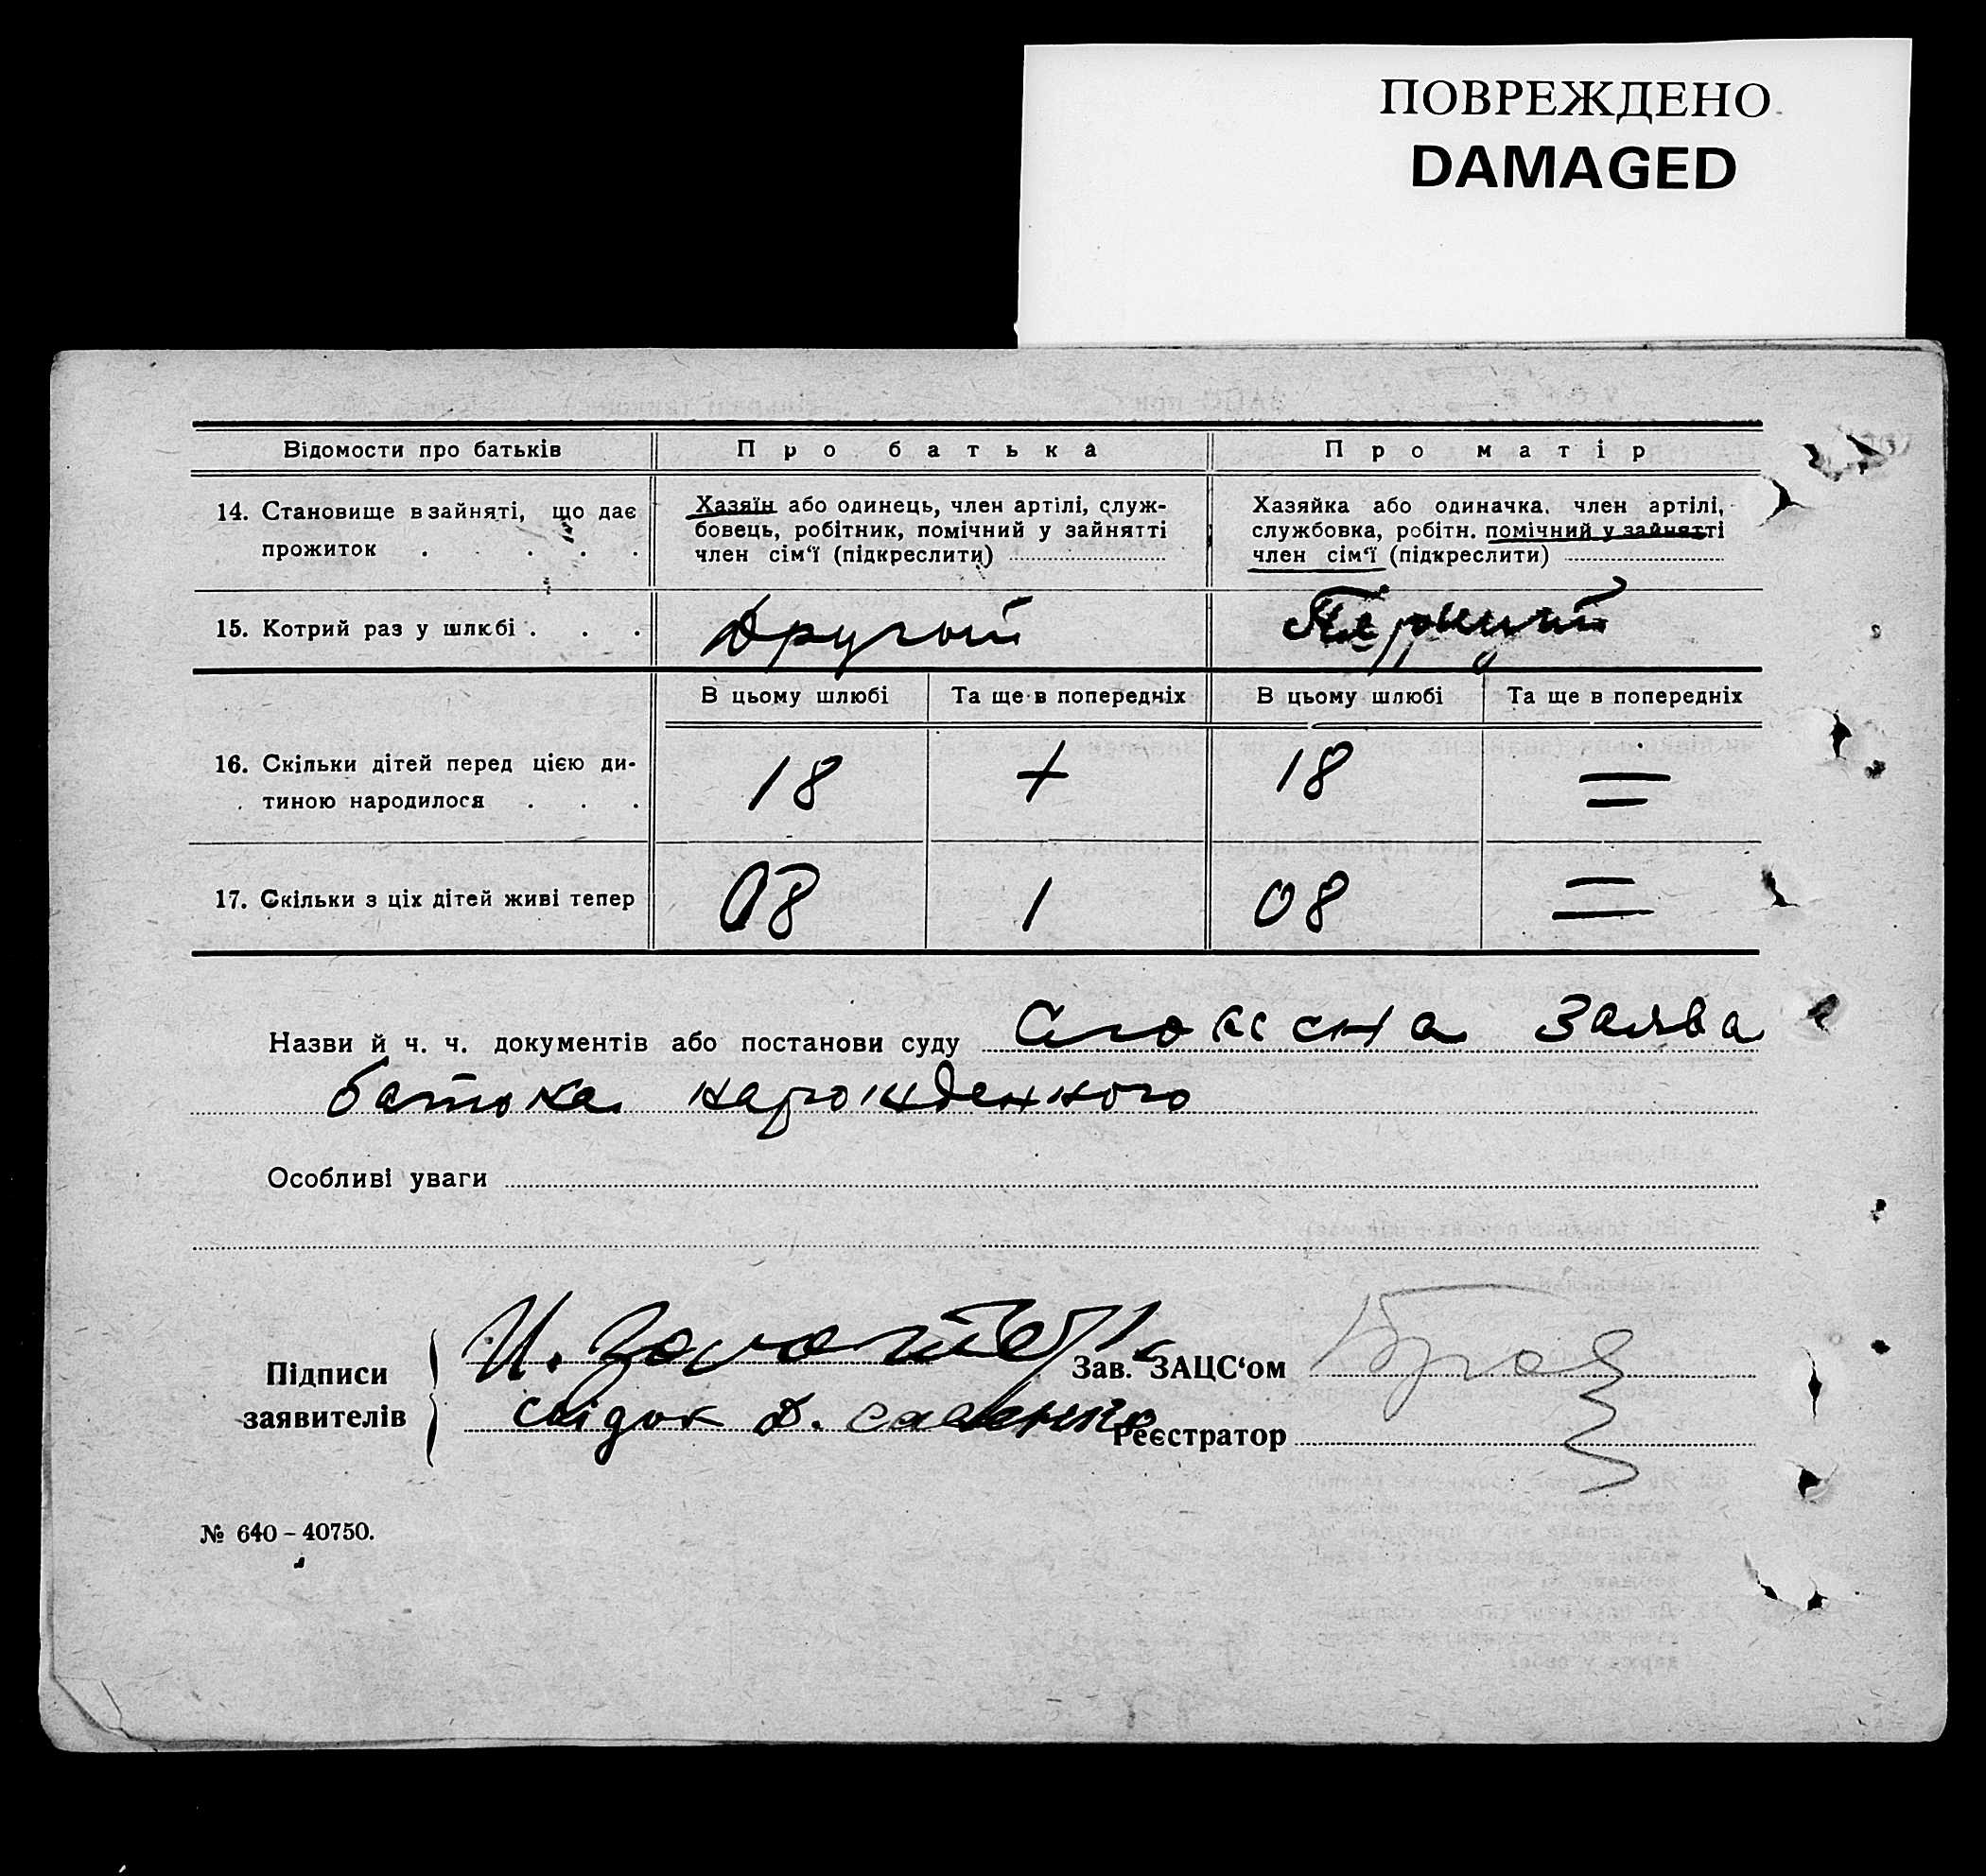 ПОВРЕЖДЕНО
DAMAGED
Відомости про батьків
Про батька
Про матір
14. Становище в зайняті, що дає
прожиток . . . . .
Хазяїн або одинець, член артілі, служ-
бовець, робітник, помічний у зайнятті
член сім‘ї (підкреслити)
Хазяйка або одиначка, член артілі,
службовка, робітн. помічний у зайнятті
член сім‘ї (підкреслити)
15. Котрий раз у шлюбі . . .
Другий
В цьому шлюбі Та ще в попередніх В цьому шлюбі Та ще в попередніх
16. Скільки дітей перед цією ди-
тиною народилося . . .
18 + 18 =
17. Скільки з ціх дітей живі тепер
08 1 08 =
Назви й ч. ч. документів або постанови суду заява
батька народженного
Особливі уваги
Підписи
заявителів
И.
Зав. ЗАЦС‘ом
свідок Д.
Реєстратор
№ 640 – 40750.